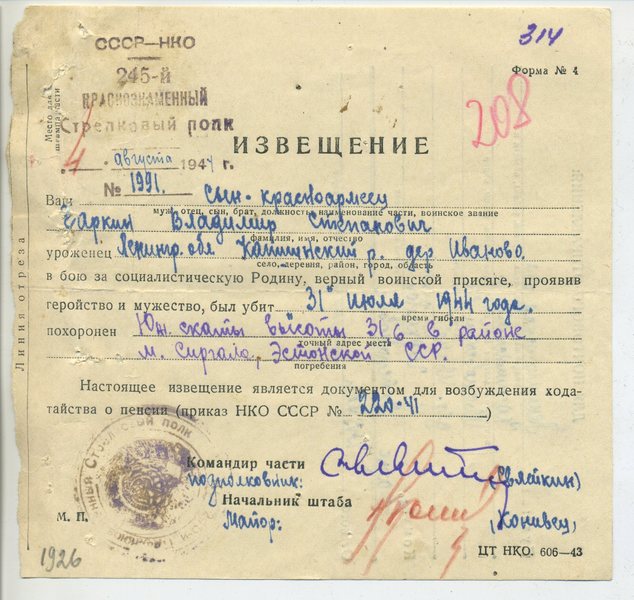 314
СССР—НКО
Форма № 4
245-й
КРАСНОЗНАМЕННЫЙ
Стрелковый полк
Место для штампа части
208
ИЗВЕЩЕНИЕ
4 августа 1944 г.
№ 1991.
Ваш сын-красноармеец
муж, отец, сын, брат, должность, наименование части, воинское звание
Владимир Степанович
фамилия, имя, отчество
уроженец Ленингр. обл. р. дер Иваново.
село, деревня, район, город, область
в бою за социалистическую Родину, верный воинской присяге, проявив
геройство и мужество, был убит 31 июля 1944 года.
время гибели
похоронен Юж. скаты высоты 31,6 в районе
точный адрес места
м. Сиргала, Эстонской ССР.
погребения
Линия отреза
Настоящее извещение является документом для возбуждения хода-
тайства о пенсии (приказ НКО СССР № 220-41)
Стрелковый полк
Командир части
подполковник:
Начальник штаба
М. П.
Майор:
1926
ЦТ НКО. 606—43